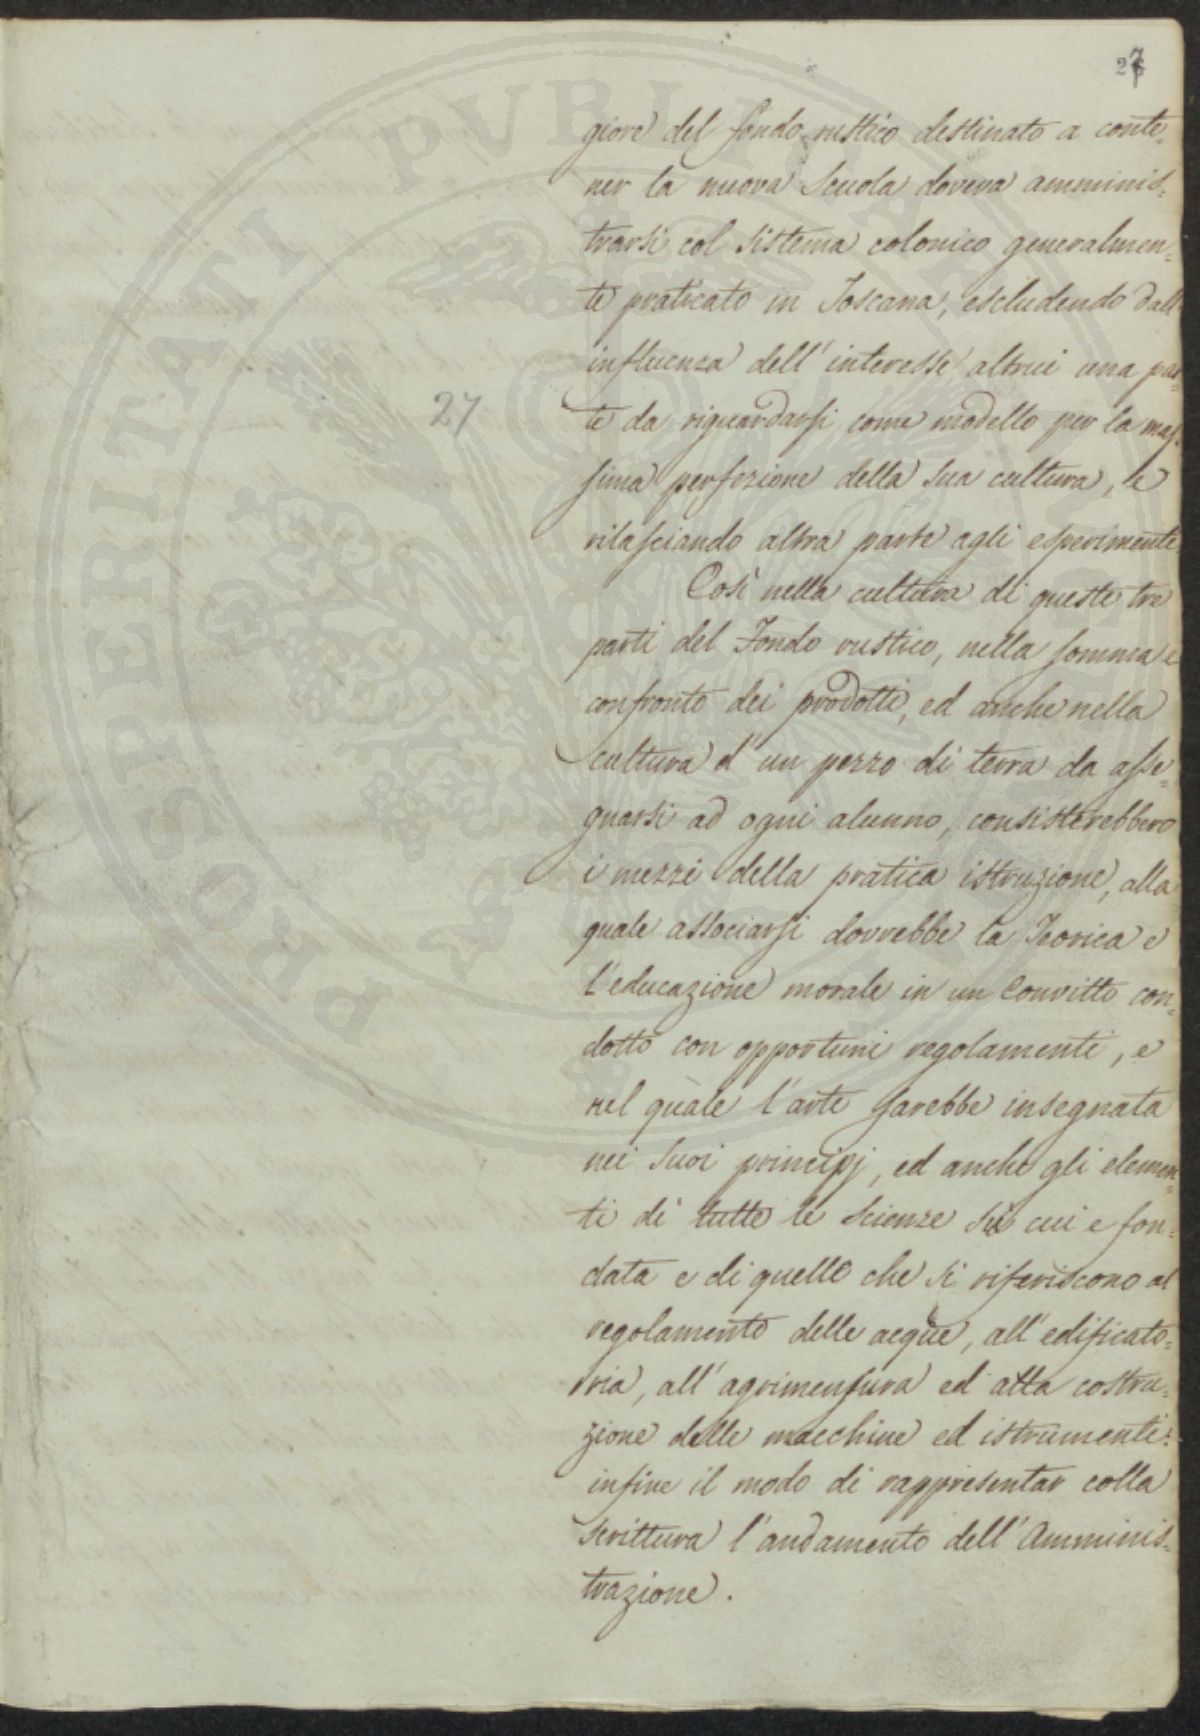 27
giore del fondo rustico destinato a conte-
ner la nuova Scuola doveva amminis-
trarsi col sistema colonico generalmen-
te praticato in Toscana, escludendo dall'
influenza dell'interesse altrui una par-
te da riguardarsi come modello per la mas-
sima perfezione della sua cultura, e
rilasciando altra parte agli esperimenti
Così nella cultura di queste tre
parti del Fondo rustico, nella somma e
confronto dei prodotti, ed anche nella
cultura d'un pezzo di terra da asse-
gnarsi ad ogni alunno, consisterebbero
i mezzi della pratica istruzione, alla
quale associarsi dovrebbe la Teorica e
l'educazione morale in un Convitto con-
dotto con opportuni regolamenti, e
nel quale l'arte sarebbe insegnata
nei suoi principj, ed anche gli elemen-
ti di tutte le scienze su cui e fon-
data e di quelle che si riferiscono al
regolamento delle acque, all'edificato-
ria, all'agrimensura ed alla costru-
zione delle macchine ed istrumenti:
infine il modo di rappresentar colla
scrittura l'andamento dell'Amminis-
trazione.
27
PROSPERITATI PUBLICAE